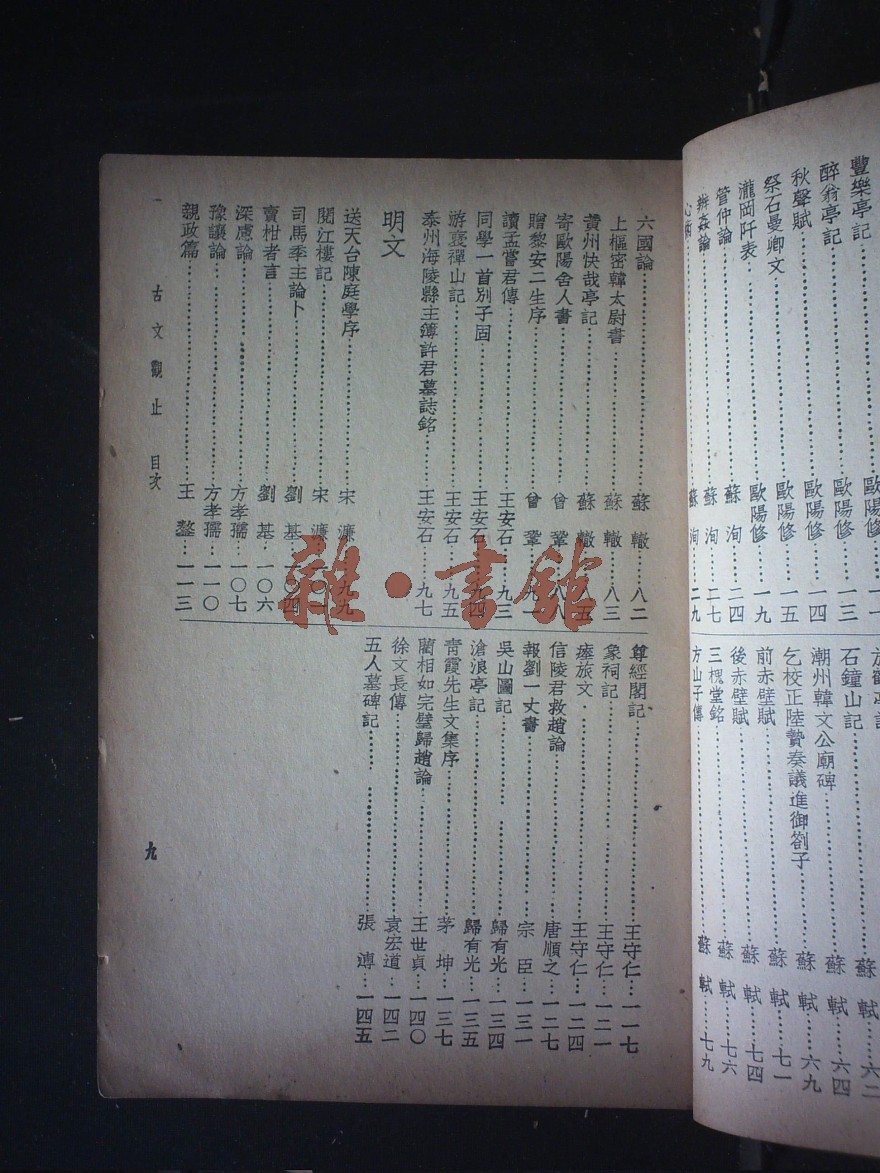 豐樂亭記
醉翁亭記……歐陽修…一三
秋聲賦……歐陽修…一四
祭石曼卿文……歐陽修…一五
瀧岡阡表……歐陽修…一九
管仲論……蘇　洵…二四
辨姦論……蘇　洵…二七
蘇　洵…二九
石鐘山記……蘇　軾…六四
潮州韓文公廟碑……蘇　軾…六九
乞校正陸贄奏議進御劄子…蘇　軾…七一
前赤壁賦……蘇　軾…七四
後赤壁賦……蘇　軾…七六
三槐堂銘……蘇　軾…七九
方山子傳
六國論……蘇　轍…八二
上樞密韓太尉書……蘇　轍…八三
黃州快哉亭記……蘇　轍…八五
寄歐陽舍人書……曾　鞏…八八
贈黎安二生序……曾　鞏…九一
讀孟嘗君傳……王安石…九三
同學一首別子固……王安石…九四
游褒禪山記……王安石…九五
泰州海陵縣主簿許君墓誌銘……王安石…九七
明文
送天台陳庭學序……宋　濂…九九
閱江樓記……宋　濂
司馬季主論卜……劉　基…一〇四
賣柑者言……劉　基…一〇六
深慮論……方孝孺…一〇七
豫讓論……方孝孺…一一〇
親政篇……王　鏊…一一三
尊經閣記……王守仁…一一七
象祠記……王守仁…一二一
瘞旅文……王守仁…一二四
信陵君救趙論……唐順之…一二七
報劉一丈書……宗　臣…一三一
吳山圖記……歸有光…一三四
滄浪亭記……歸有光…一三五
青霞先生文集序……茅　坤…一三七
藺相如完璧歸趙論……王世貞…一四〇
徐文長傳……袁宏道…一四二
五人墓碑記……張　溥…一四五
古文觀止　目次
九
雜·書館